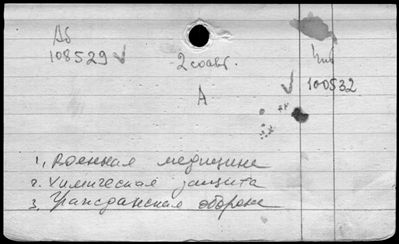 Аб
108529 ✓
2 соавт.
Чиб
100532
А
1, Военная медицина
2. Химическая защита
3, Гражданская оборона